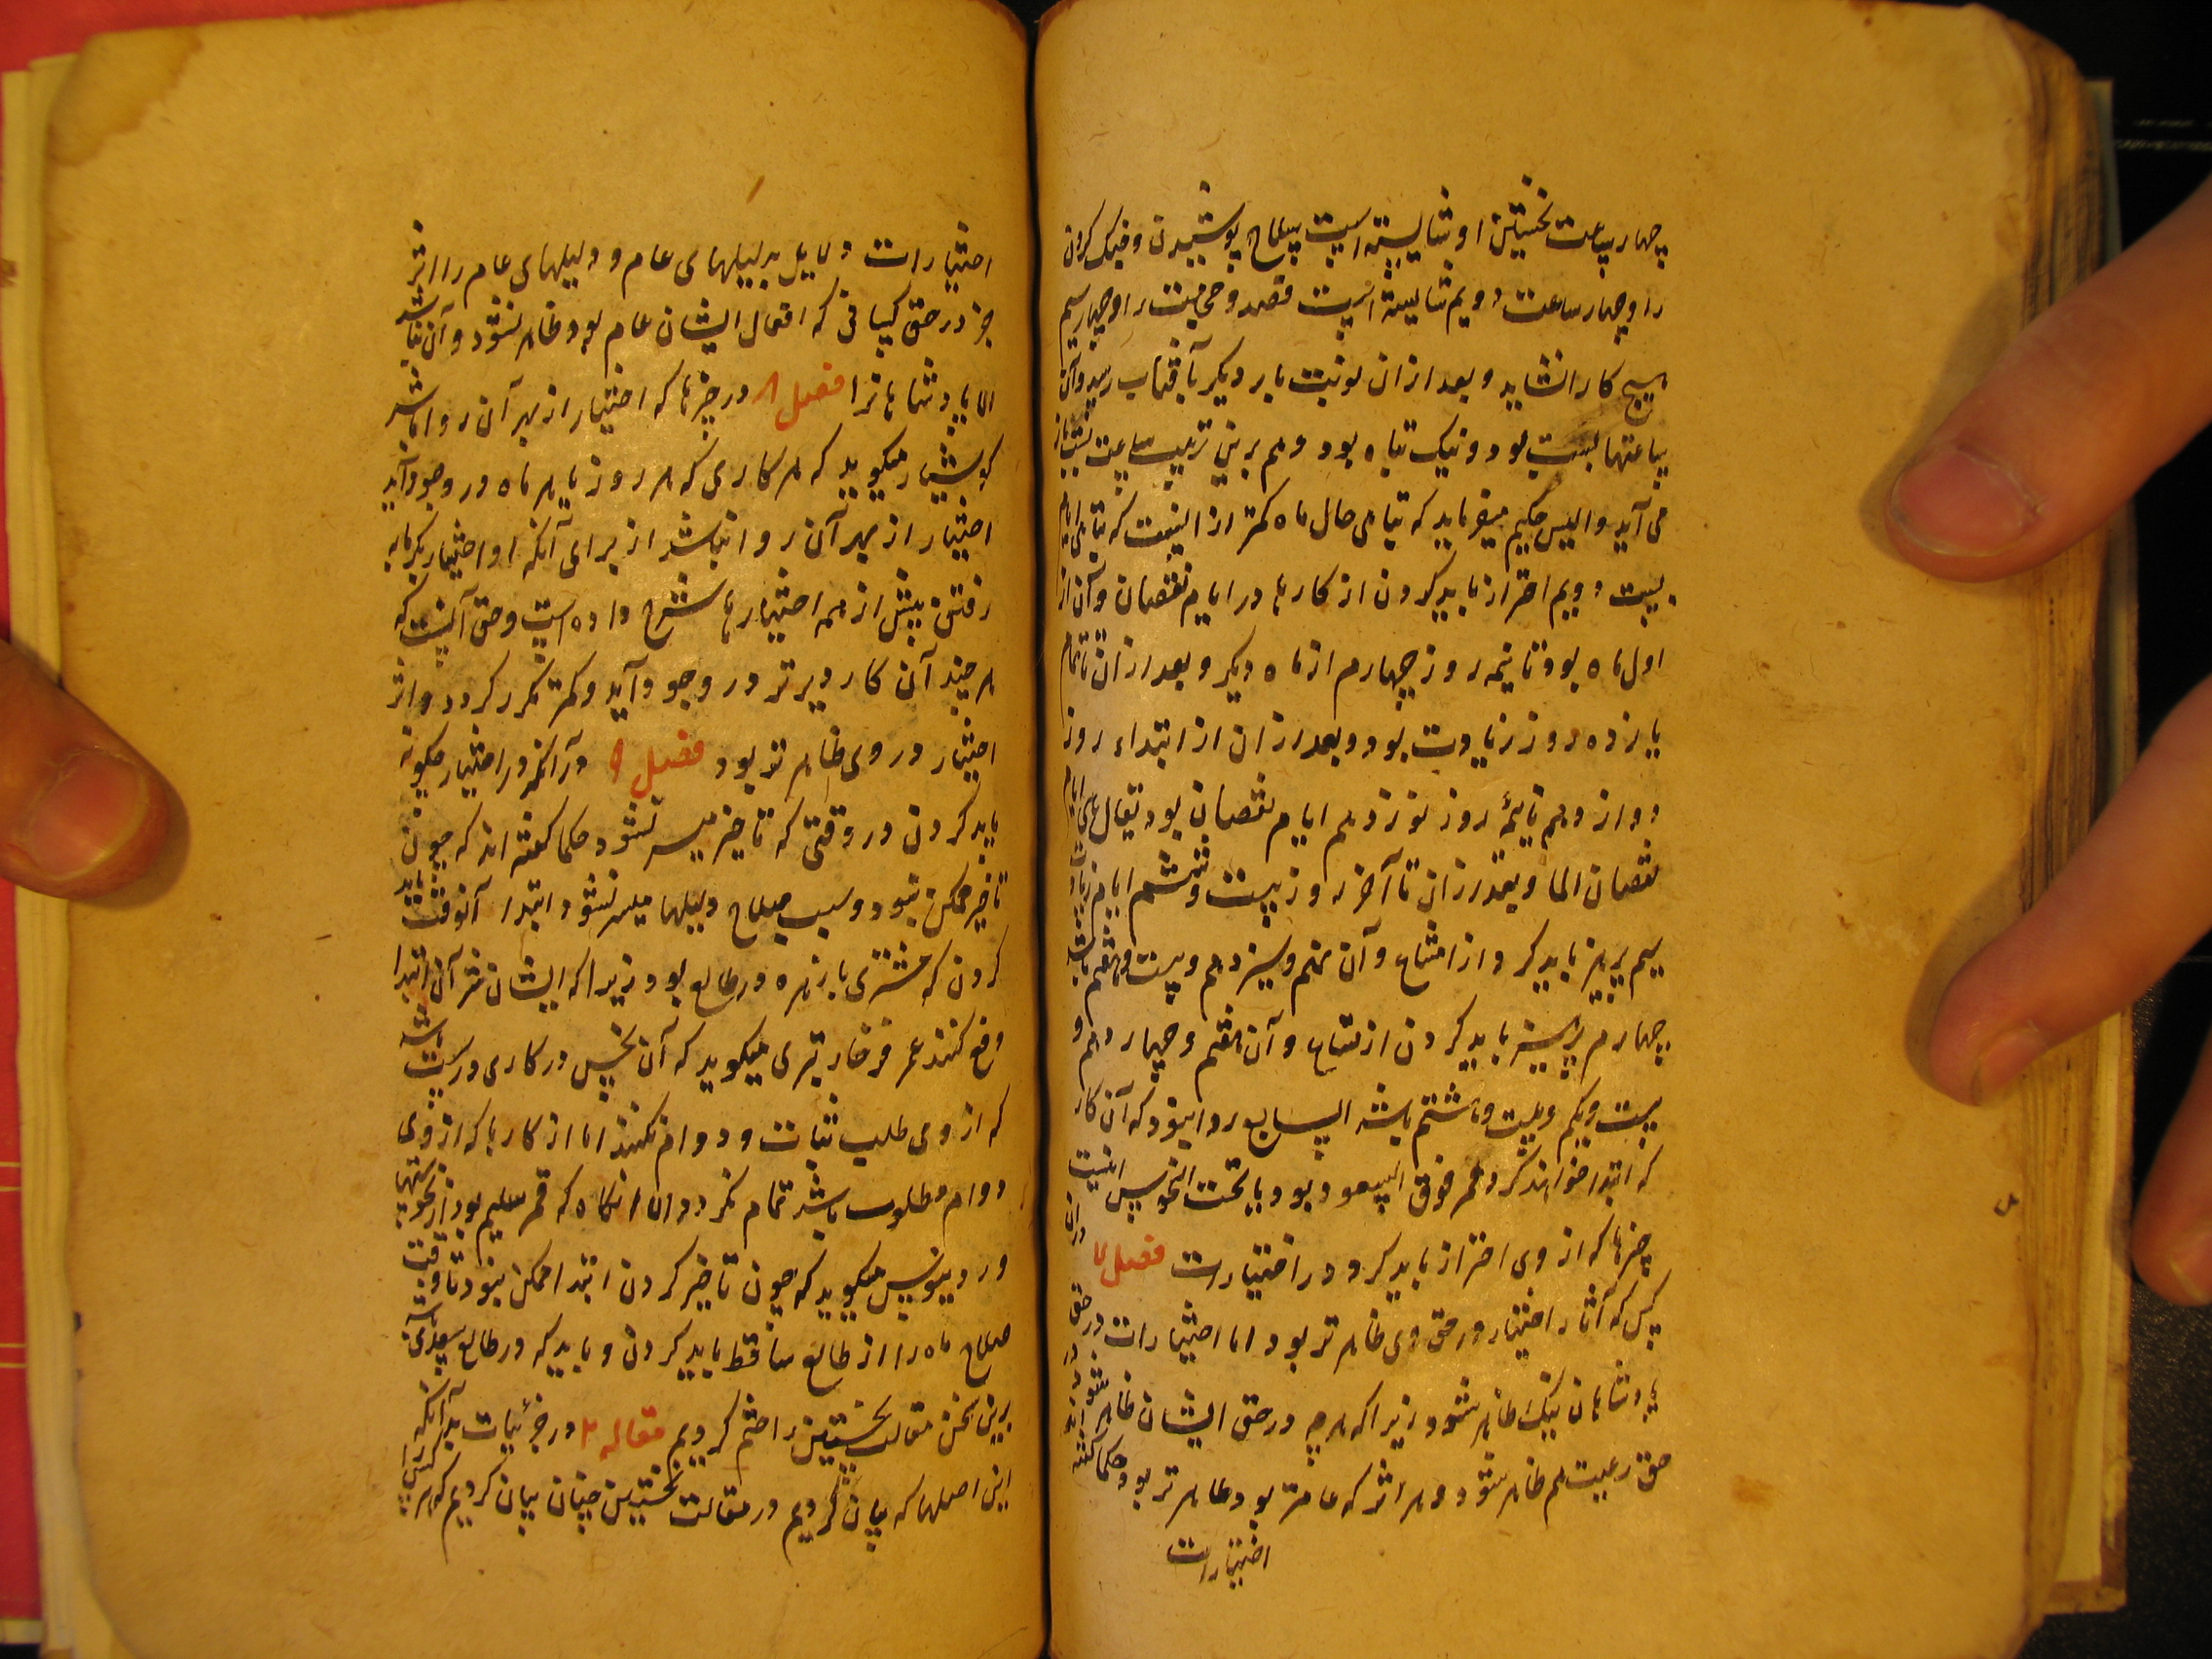 چهار ساعت نخستین او شایسته است سلاح پوشیدن و جنک کردن
را و چهار ساعت دویم شایسته است قصد و حجامت را و چهار سیم
هیچ کار را نشاید و بعد ازان نوبت بار دیکر بآفتاب رسد و آن
ساعتها بست بود و نیک تباه بود و هم برین ترتیب ساعت
می آید و الیس حکیم میفرماید که تباهی حال ماه کمتر ازانیست که تباهی ایام
بیست دویم احتراز باید کردن از کارها در ایام نقصان و آن از
اول ماه بود تا نیمه روز چهارم از ماه دیکر و بعد ازان تا تمام
یازده روز زیادت بود و بعد ازان از ابتداء روز
دوازدهم تا نیمهٔ روز نوزدهم ایام نقصان بود یقال لها ایام
نقصان الما و بعد ازان تا آخر روز بیست و ششم ایام زیادت
سیم پرهیز باید کرد از امتناع و آن پنجم و سیزدهم و بیست و هفتم باشد
چهارم پرهیز باید کردن از و آن هفتم و چهاردهم و
بیست و یکم و بیست و هشتم باشد السابع روا نبود که آن کار
که ابتدا خواهند کرد قمر فوق السعود بود یا تحت النحوس اینست
چیزها که از وی احتراز باید کرد در اختیارات فصل ۷ در آن
کس که آثار اختیار در حق وی ظاهر تر بود اما اختیارات در حق
پادشاهان نیک ظاهر شود زیرا که هرچه در حق ایشان ظاهر شود در
حق رعیت هم ظاهر شود و هر اثر که عامتر بود ظاهر تر بود و حکما گفته اند
اختیارات
اختیارات دلایل بدلیلهای عام و دلیلهای عام را اثر
جز در حق کسانی که افعال ایشان عام بود ظاهر نشود و آن نباشد
الا پادشاهانرا فصل ۸ در چیزها که اختیار از بهر آن روا باشد
کوشیار میکوید که هر کاری که هر روز یا هر ماه در وجود آید
اختیار از بهر آن روا نباشد از برای آنکه او اختیار بکرمابه
رفتن پیش از همه اختیارها شرح داده است و حق آنست که
هر چند آن کار دیرتر در وجود آید و کمتر مکرر کردد و اثر
اختیار در وی ظاهر تر بود فصل ۹ در آنکه در اختیار چکونه
باید کردن در وقتی که تاخیر میسر نشود حکما کفته اند که چون
تاخیر ممکن نبود و سبب صلاح دلیلها میسر نشود ابتدا آنوقت باید
کردن که مشتری یا زهره در طالع بود زیرا که ایشان شر آن ابتدا
دفع کنند عمر فرخان تبری میکوید که آن نحس در کاری درست باشد
که از وی طلب ثبات و دوام نکنند اما از کارها که از وی
دوام مطلوب باشد تمام نکردد الا آنکاه که قمر سلیم بود از نحوستها
و دریوس میکوید که چون تاخیر کردن ابتدا ممکن نبود تا وقت
صلاح ماه را از طالع ساقط باید کردن و باید که در طالع سعدی باشد
برین سخن مقالت نخستین را ختم کردیم مقاله ۲ در جزئیات بدآنکه
این اصلها که بیان کردیم در مقالت نخستین چنان بیان کردیم که هر کس